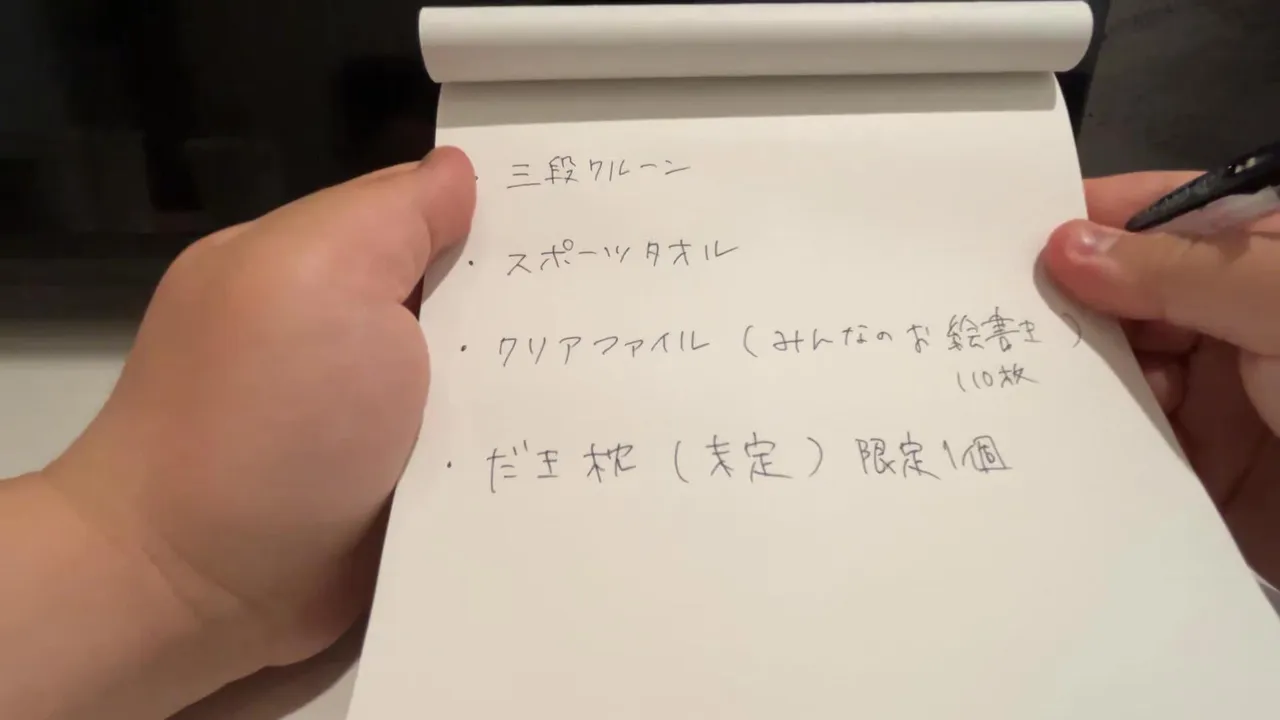 ・三段クルーン
・スポーツタオル
・クリアファイル（みんなのお絵書き）
110枚
・だき枕（未定）限定1個